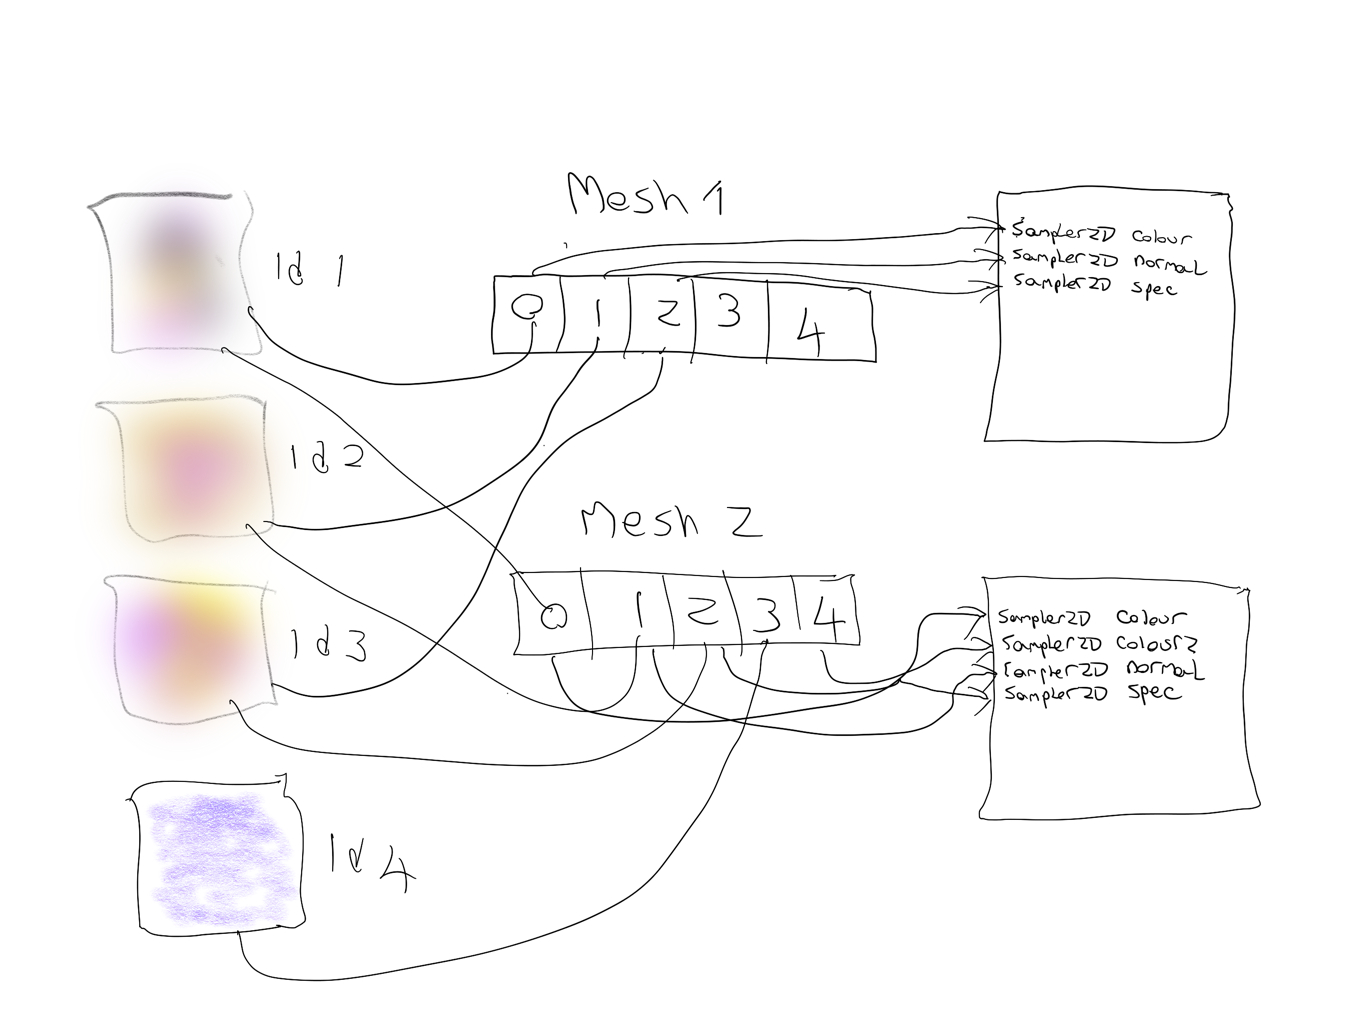 Mesh 1
Id 1
0 1 2 3 4
Sampler2D Colour
Sampler2D Normal
Sampler2D Spec
Id 2
Mesh 2
Id 3
0 1 2 3 4
Sampler2D Colour
Sampler2D Colour2
Sampler2D Normal
Sampler2D Spec
Id 4